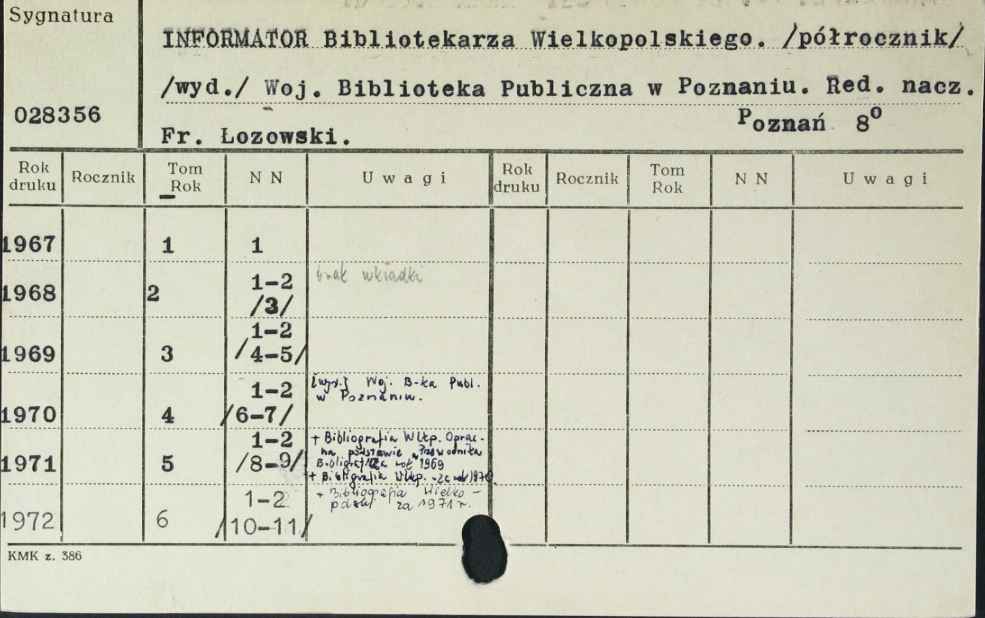 Sygnatura
INFORMATOR Bibliotekarza Wielkopolskiego. /półrocznik/
/wyd./ Woj. Biblioteka Publiczna w Poznaniu. Red. nacz.
028356
Poznań 8⁰
Fr. Łozowski.
Rok druku Rocznik Tom Rok N N Uwagi Rok druku Rocznik Tom Rok N N Uwagi
1967 1 1
1968 2 1-2 /3/ brak wkładki
1969 3 1-2 /4-5/
1970 4 1-2 /6-7/ [wyd.] Woj. B-ka Publ.
w Poznaniu.
1971 5 1-2 /8-9/ + Bibliografia Wlkp. Oprac.
na podstawie Przewodnika
Bibliograf. za rok 1969
+ Bibliografia Wlkp. za rok 1970
1972 6 1-2 /10-11/ + Bibliografia Wielko-
polski za 1971 r.
KMK z. 386